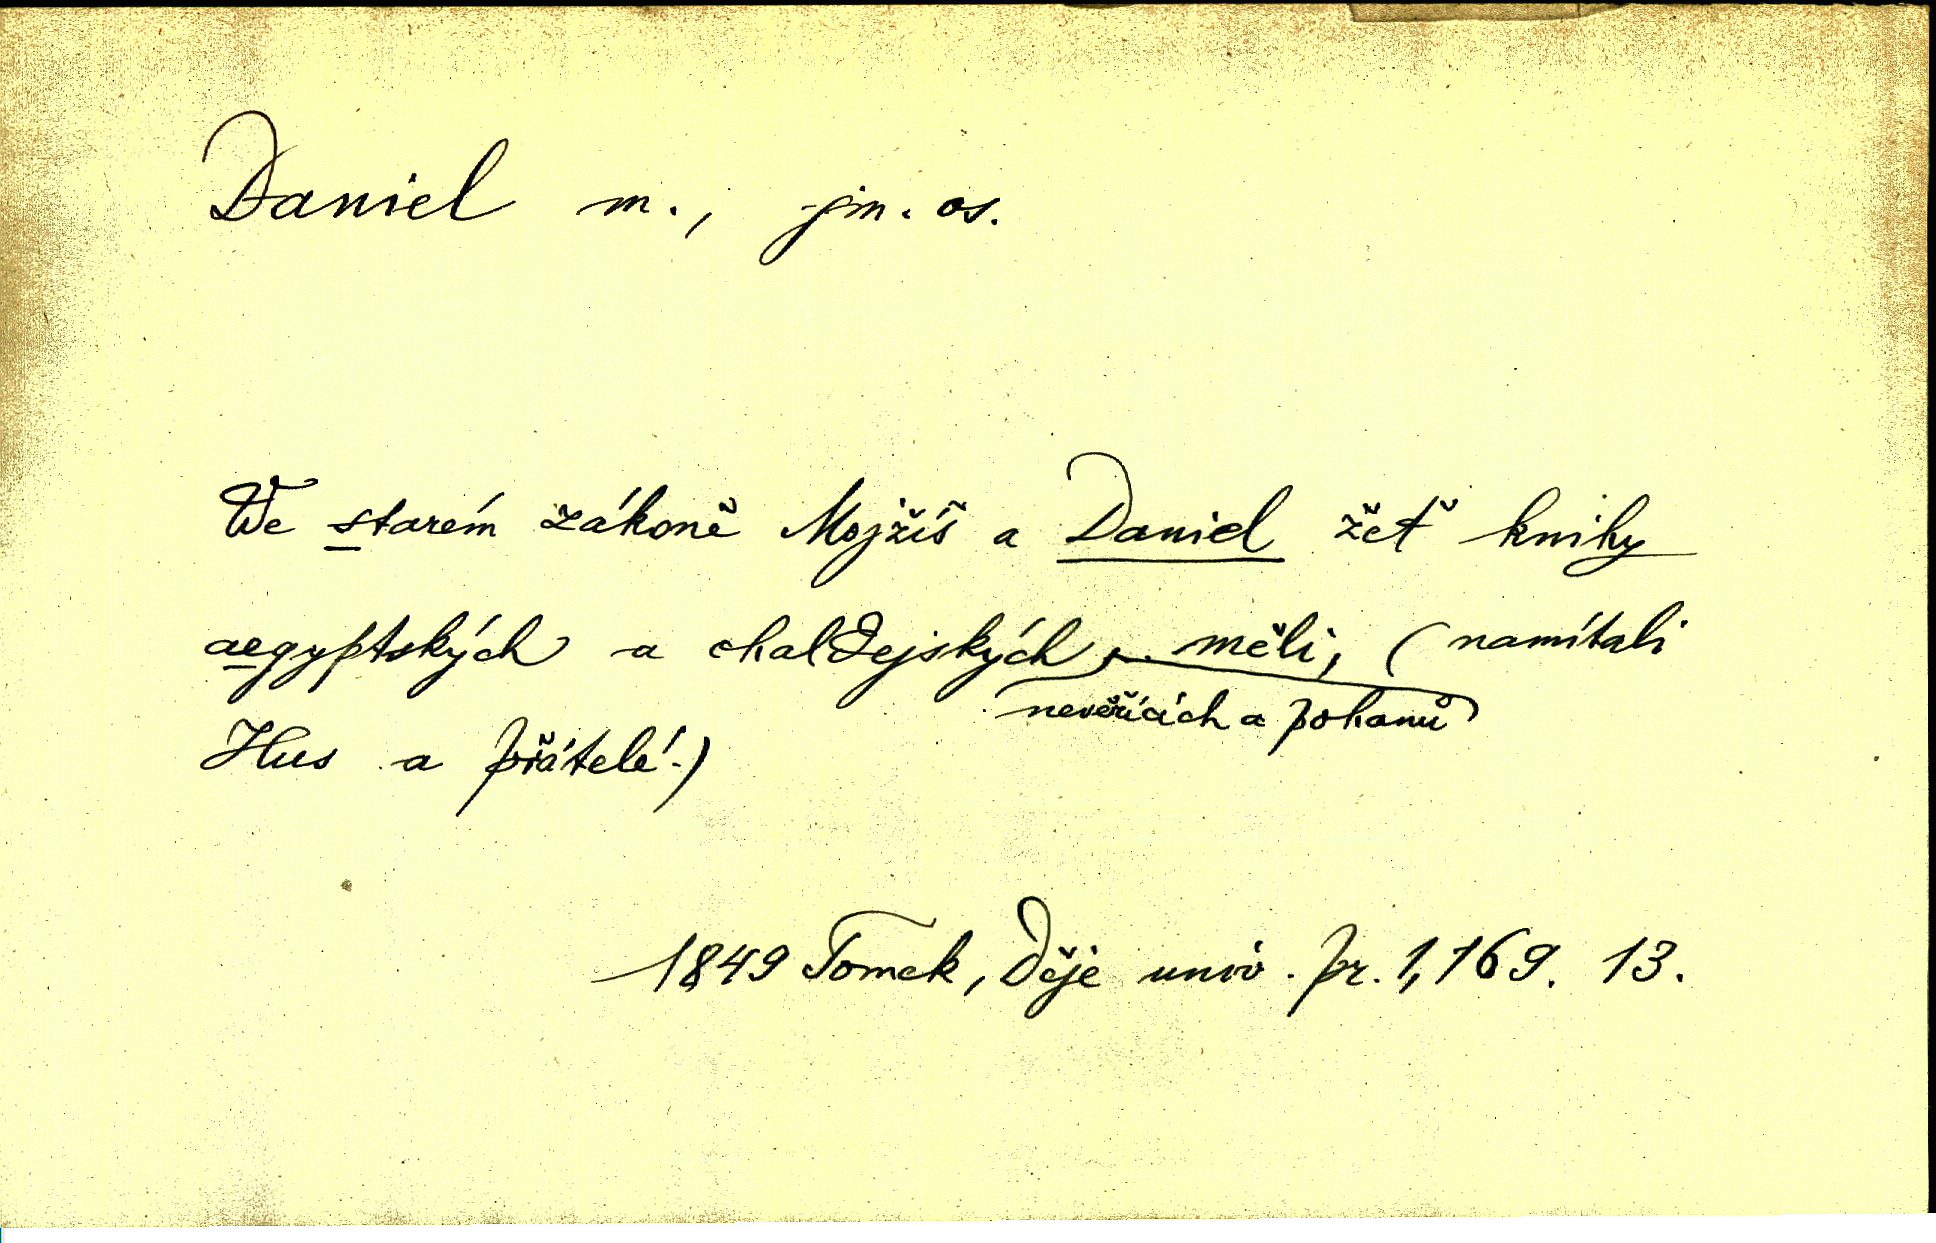 Daniel m., jm. os.
We starém zákoně Mojžíš a Daniel žeť knihy
aegyptských a chaldejských měli, (namítali
nevěřících a pohanů
Hus a přátelé.)
1849 Tomek, Děje univ. pr. 1,169. 13.